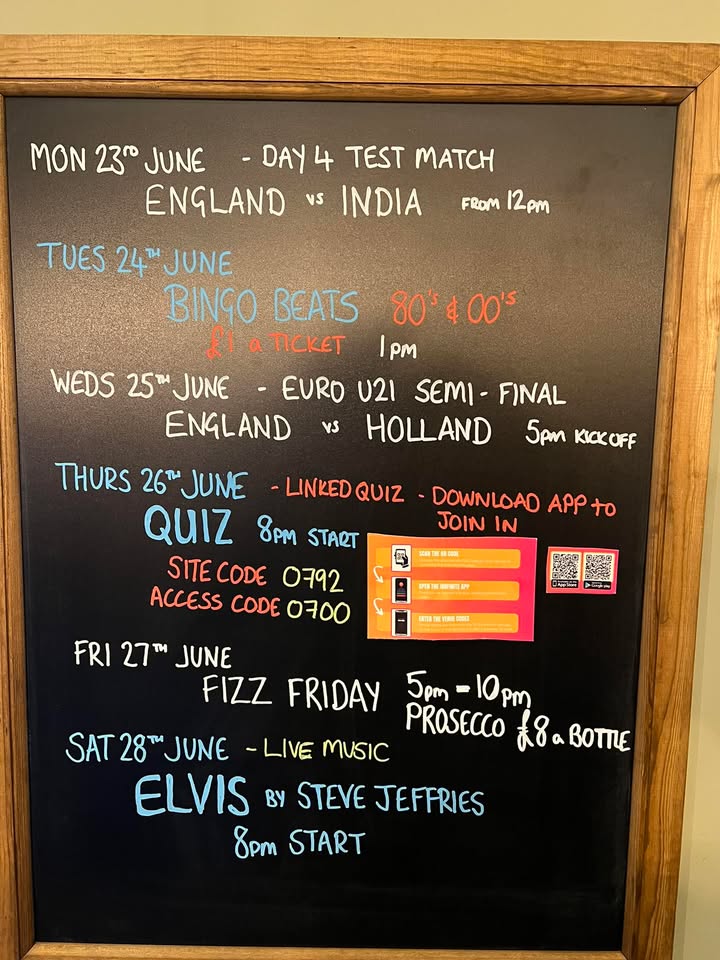 MON 23RD JUNE - DAY 4 TEST MATCH
ENGLAND vs INDIA FROM 12pm
TUES 24TH JUNE
BINGO BEATS 80's & 00's
£1 a TICKET 1pm
WEDS 25TH JUNE - EURO U21 SEMI-FINAL
ENGLAND vs HOLLAND 5pm KICK OFF
THURS 26TH JUNE - LINKED QUIZ - DOWNLOAD APP to
JOIN IN
QUIZ 8pm START
SITE CODE 0792
ACCESS CODE 0700
SCAN THE QR CODE
OPEN THE APP
ENTER THE VENUE CODES
App Store Google play
FRI 27TH JUNE
FIZZ FRIDAY 5pm - 10pm
PROSECCO £8 a BOTTLE
SAT 28TH JUNE - LIVE MUSIC
ELVIS BY STEVE JEFFRIES
8pm START